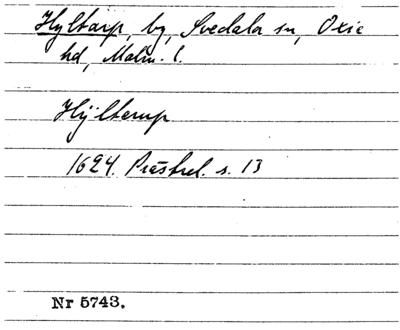 Hyltarp, by, Svedala sn, Oxie
hd, Malm. l.
Hÿlterup
1624. Prästrel. s. 13
Nr 5743.